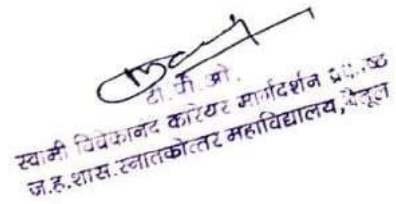 टी. पी. ओ.
स्वामी विवेकानंद कारियर मार्गदर्शन
ज.ह.शास.स्नातकोत्तर महाविद्यालय, बैतूल